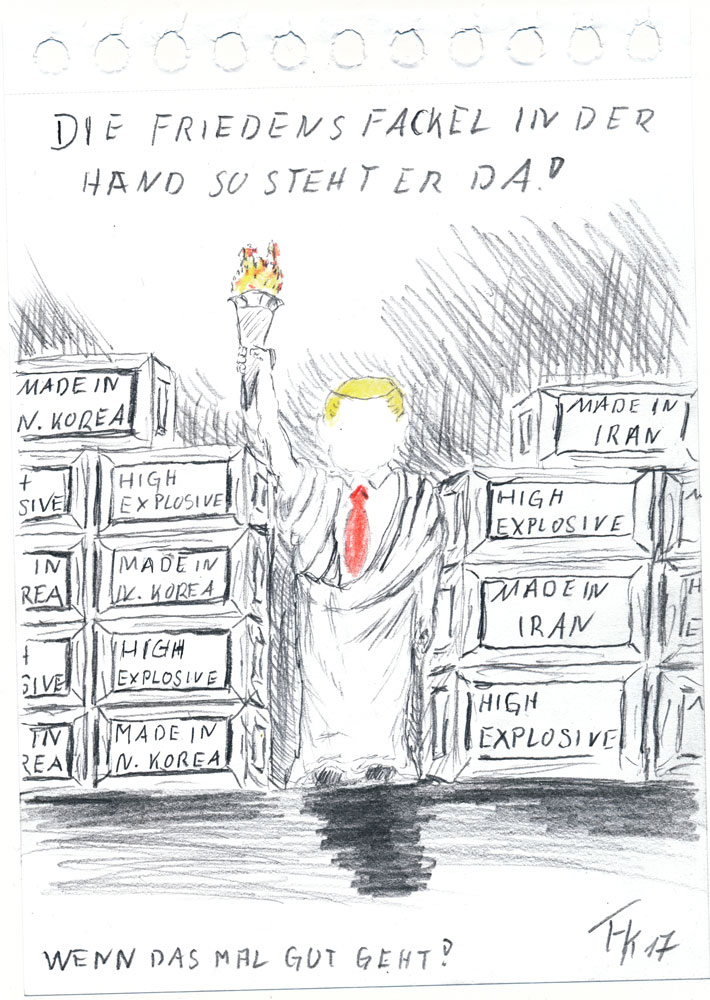 DIE FRIEDENS FACKEL IN DER
HAND SO STEHT ER DA!
MADE IN
N. KOREA
MADE IN
IRAN
SIVE
HIGH
EXPLOSIVE
HIGH
EXPLOSIVE
IN
REA
MADE IN
N. KOREA
MADE IN
IRAN
SIVE
HIGH
EXPLOSIVE
HIGH
EXPLOSIVE
IN
REA
MADE IN
N. KOREA
WENN DAS MAL GUT GEHT?
THK 17